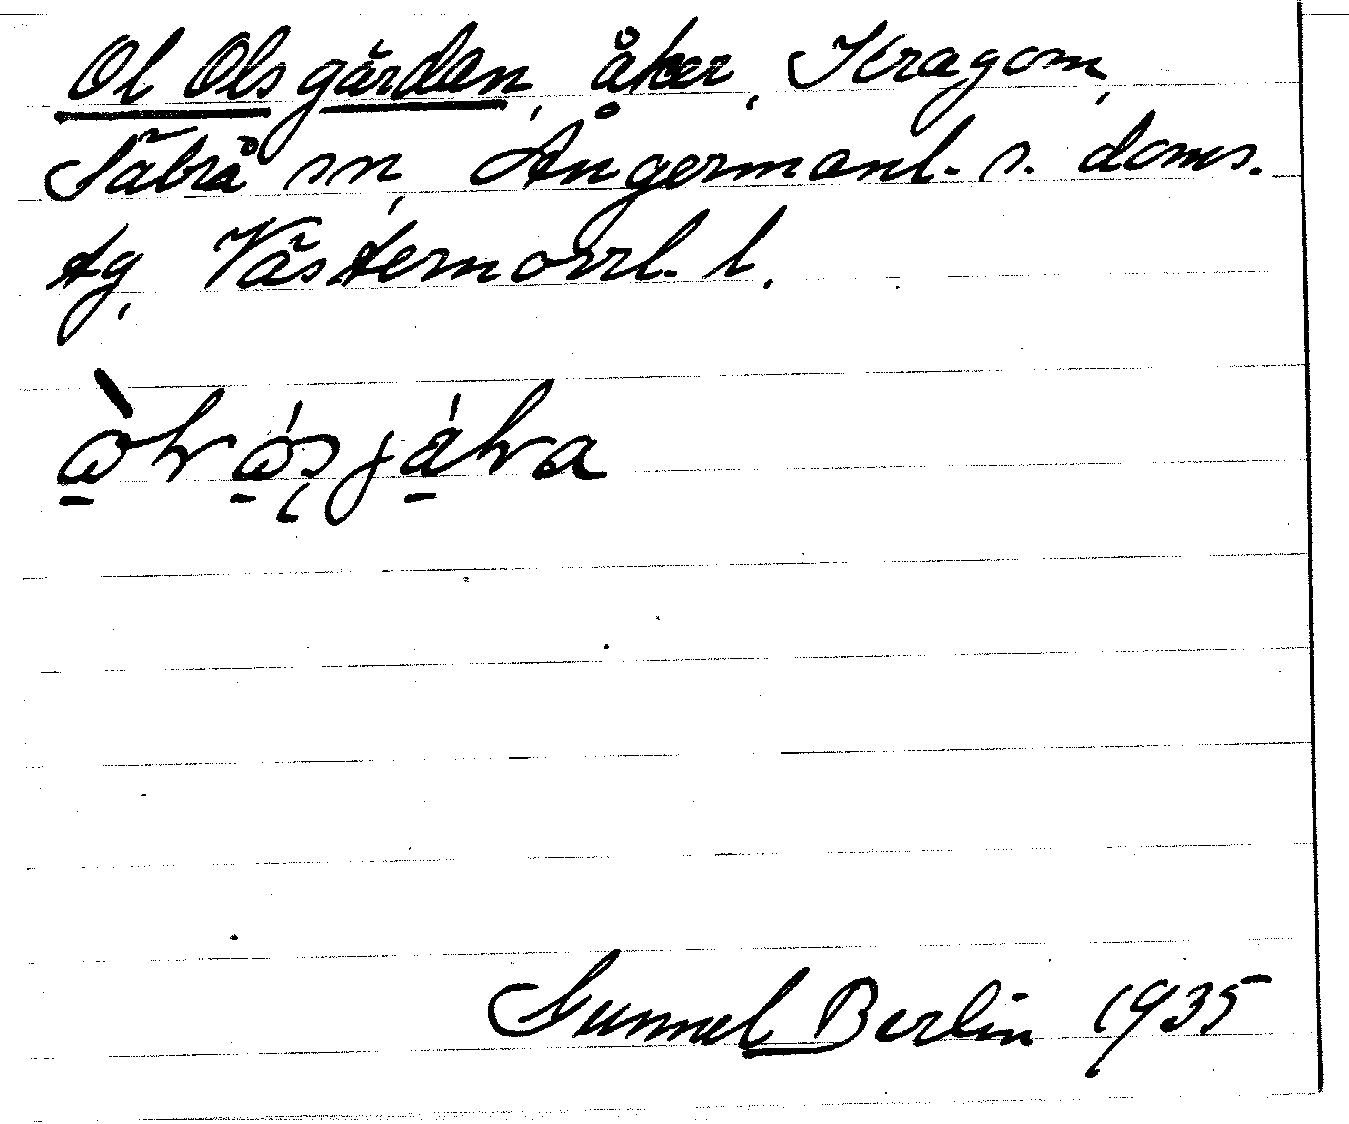 Ol Olsgården, åker, Kragom,
Säbrå sn, Ångermanl. s. doms.
tg, Västernorrl. l.
Gunnel Berlin 1935